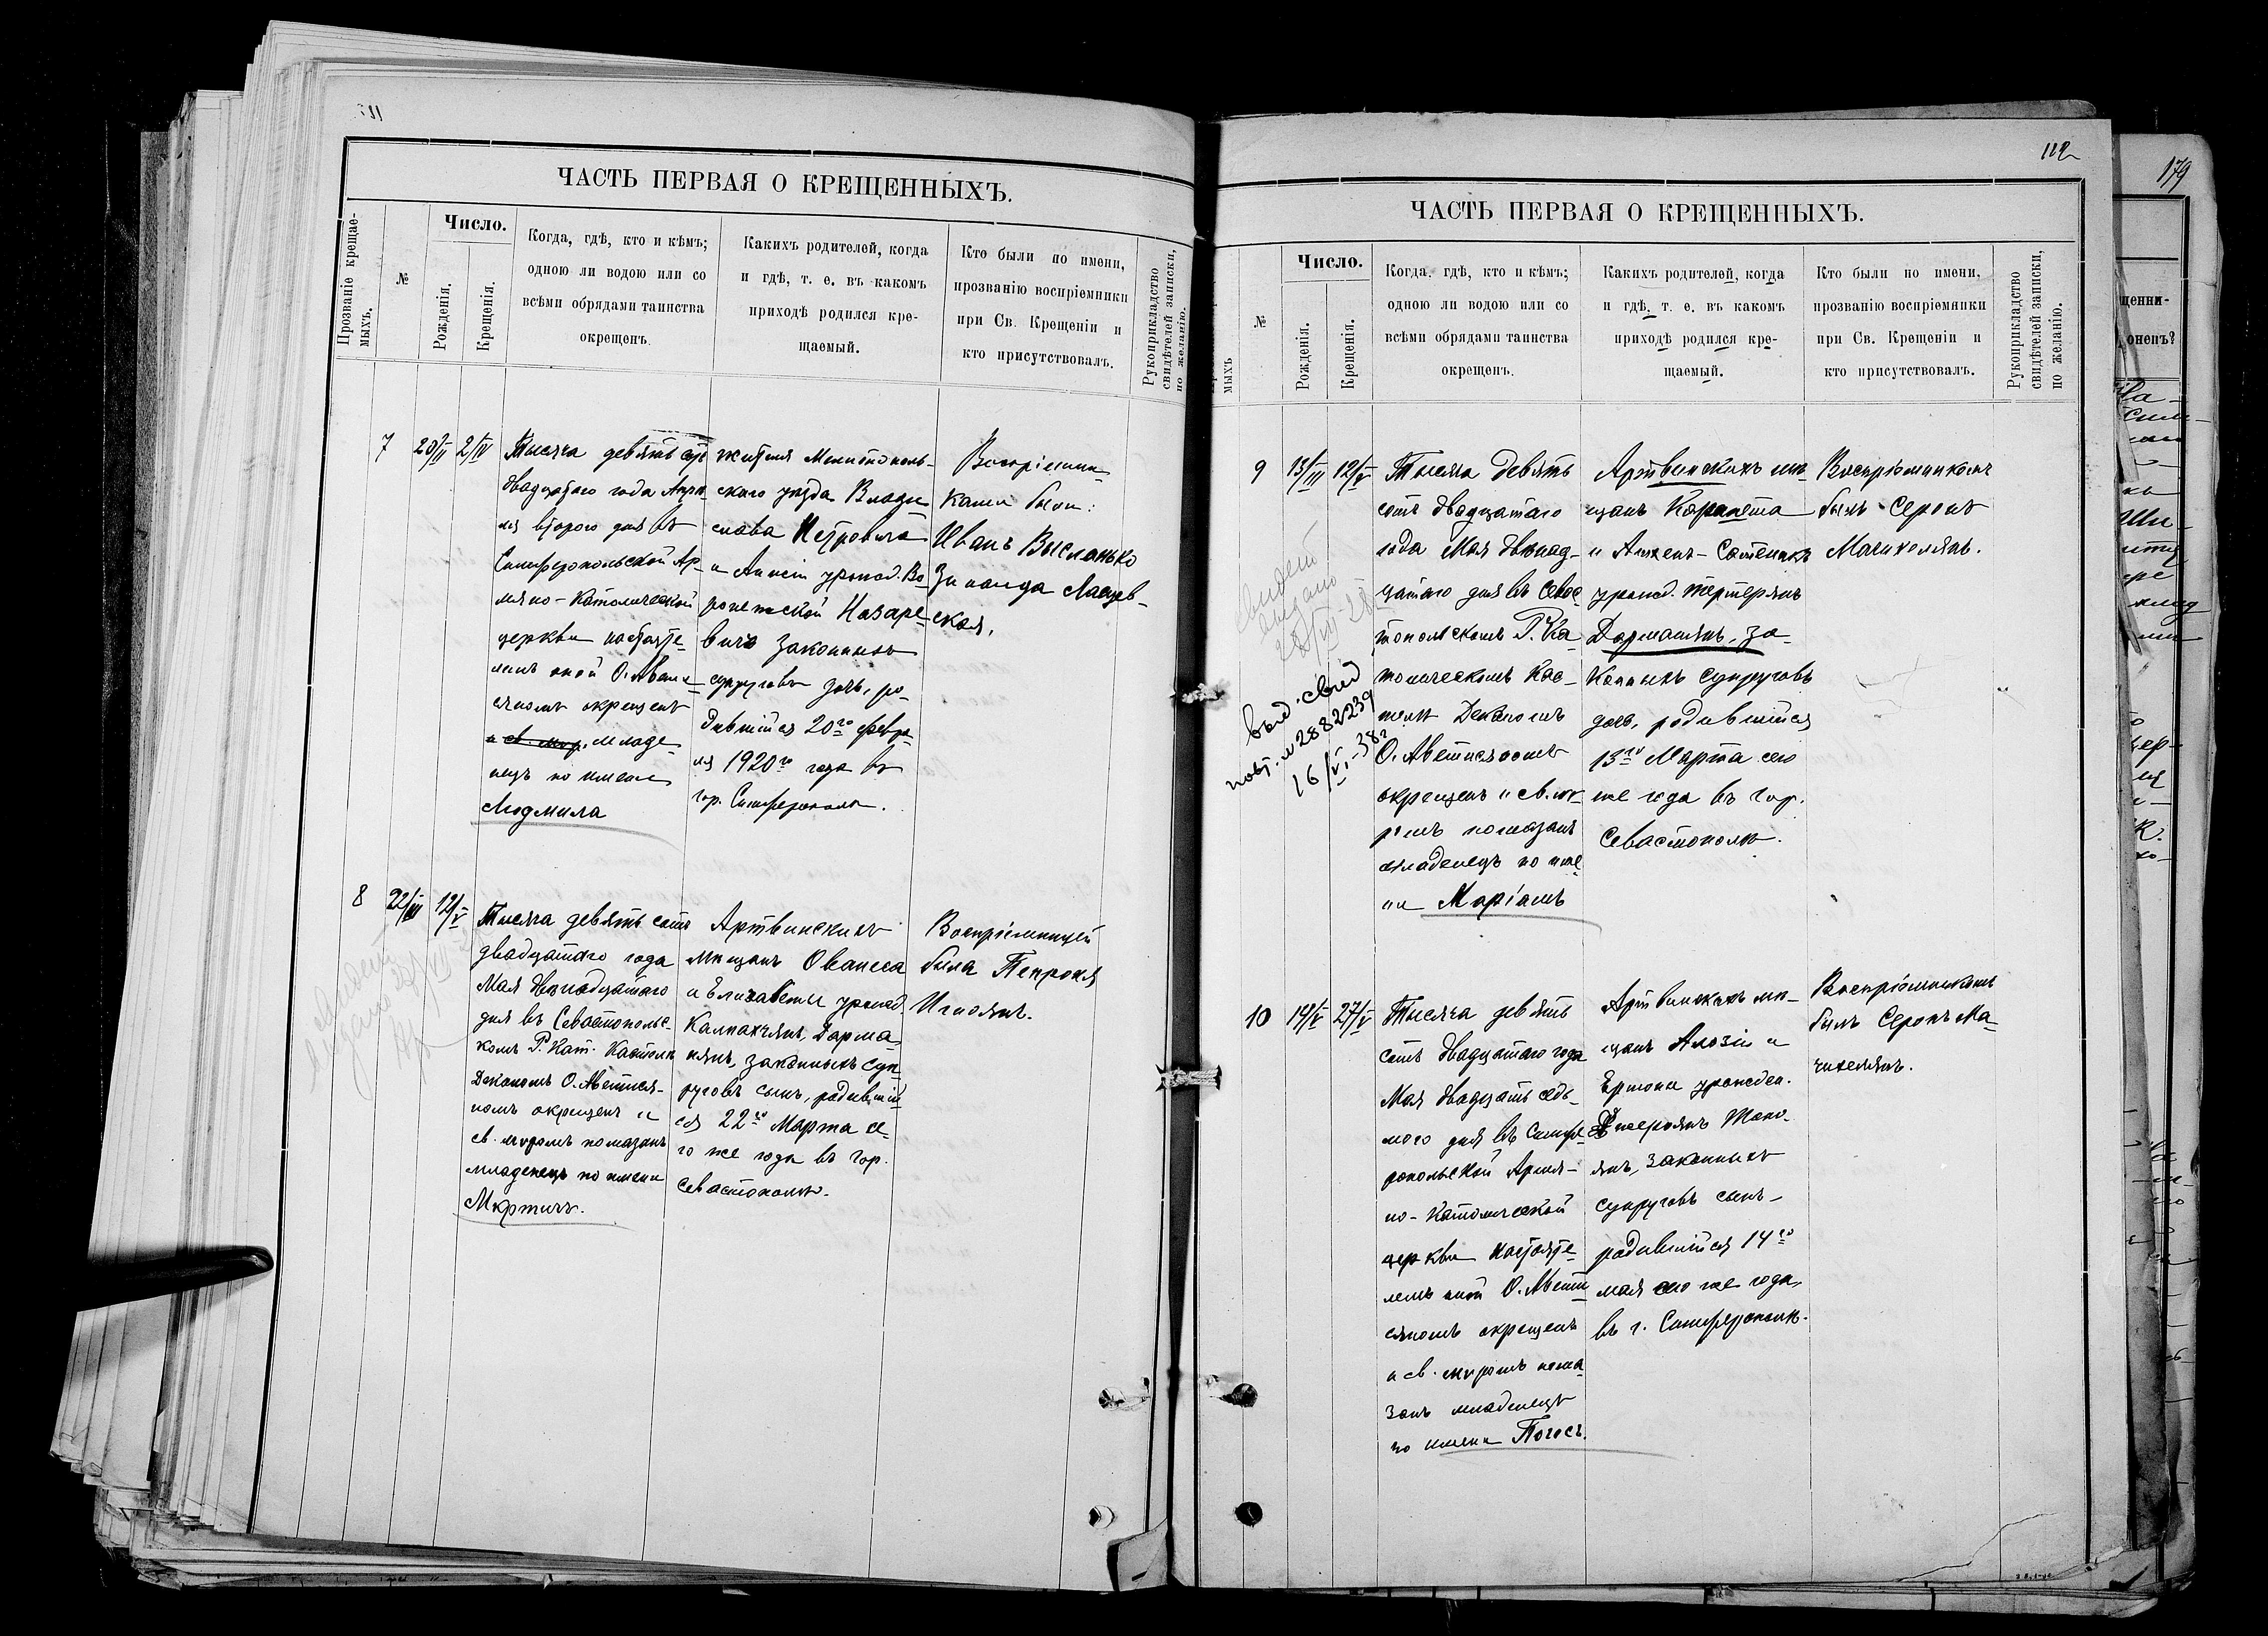 ЧАСТЬ ПЕРВАЯ О КРЕЩЕННЫХЪ.
Прозваніе крещае-
мыхъ.
№
Число.
Рожденія.
Крещенія.
Когда, гдѣ, кто и кѣмъ;
одною ли водою или со
всѣми обрядами таинства
окрещенъ.
Какихъ родителей, когда
и гдѣ, т. е. въ какомъ
приходѣ родился кре-
щаемый.
Кто были по имени,
прозванію воспріемники
при Св. Крещеніи и
кто присутствовалъ.
Рукоприкладство
свидѣтелей записки,
по желанію.
7
20/II
2/IV
Тысяча девятьсот
двадцатаго года Апрѣ
ля второго дня въ
Симферопольской Ар-
мяно-Католической
церкви настояте-
лемъ оной О. Авети
сяномъ окрещенъ
и св. мѵр. младе-
нецъ по имени
Людмила
жителя Мелитополь-
скаго уѣзда Влади
слава Петровича
и Анисіи урожд. Во-
Назаре-
вичъ законныхъ
супруговъ дочь, ро-
дившійся 20го февра-
ля 1920го года въ
гор. Симферополѣ.
Воспріемни-
ками были:
Иванъ Высланько
Зинаида
ская.
8
22/III
12/V
Тысяча девятьсотъ
двадцатаго года
Мая двѣнадцатаго
дня въ Севастопольс-
комъ Р. Кат. Костелѣ
Деканомъ О. Аветися-
номъ окрещенъ и
св. мѵромъ помазанъ
младенецъ по имени
Мкртичъ.
Артвинскихъ
мѣщанъ Ованеса
и Елизаветы урожд.
Калпакчянъ, Дарма-
нянъ, законныхъ суп-
руговъ сынъ, родившій-
ся 22го Марта се-
го же года въ гор.
Севастополѣ.
Воспріемницей
была Тепроня
ЧАСТЬ ПЕРВАЯ О КРЕЩЕННЫХЪ.
112
179
мыхъ
№
Число.
Рожденія.
Крещенія.
Когда, гдѣ, кто и кѣмъ;
одною ли водою или со
всѣми обрядами таинства
окрещенъ.
Какихъ родителей, когда
и гдѣ, т. е. въ какомъ
приходѣ родился кре-
щаемый.
Кто были по имени,
прозванію воспріемники
при Св. Крещеніи и
кто присутствовалъ.
Рукоприкладство
свидѣтелей записки,
по желанію.
9
13/III
12/V
Тысяча девять
сотъ двадцатаго
года Мая двѣнад-
цатаго дня въ Севас-
топольскомъ Р. Ка-
толическомъ Кос-
телѣ Деканомъ
О. Аветисяномъ
окрещенъ и св. мѵ-
ромъ помазанъ
младенецъ по име-
ни Маріамъ
Артвинскихъ мѣ-
щанъ Карапета
и Ашхенъ-Сатеникъ
урожд. Тертерянъ
Дарманянъ, за-
конныхъ супруговъ
дочь, родившійся
13го Марта сего
же года въ гор.
Севастополѣ.
Воспріемникомъ
былъ Серопъ
выд. свид
повт. № 2882239
16/VI-38г
10
14/V
27/V
Тысяча девять
сотъ двадцатаго года
Мая двадцать седь-
мого дня въ Симфе-
ропольской Армя-
но-Католической
церкви настояте-
лемъ оной О. Авети
сяномъ окрещенъ
и св. мѵромъ пома-
занъ младенецъ
по имени Погосъ.
Артвинскихъ мѣ-
щанъ Алозія и
урожден.
янъ, законныхъ
супруговъ сынъ
родившійся 14го
мая сего же года,
въ г. Симферополѣ.
Воспріемникомъ
былъ Серопъ Ма-
щенни-
оненъ?